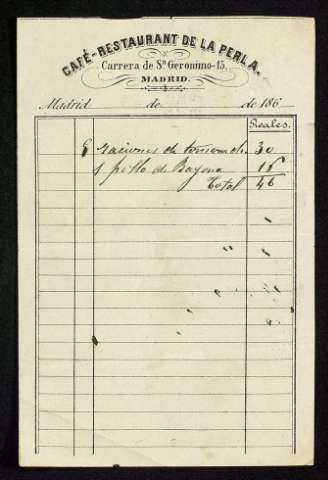 CAFÉ-RESTAURANT DE LA PERLA.
Carrera de Sn. Geronimo-15.
MADRID.
Madrid de de 186
Reales.
6 raciones de 30
1 pollo de Bayona 16
Total 46